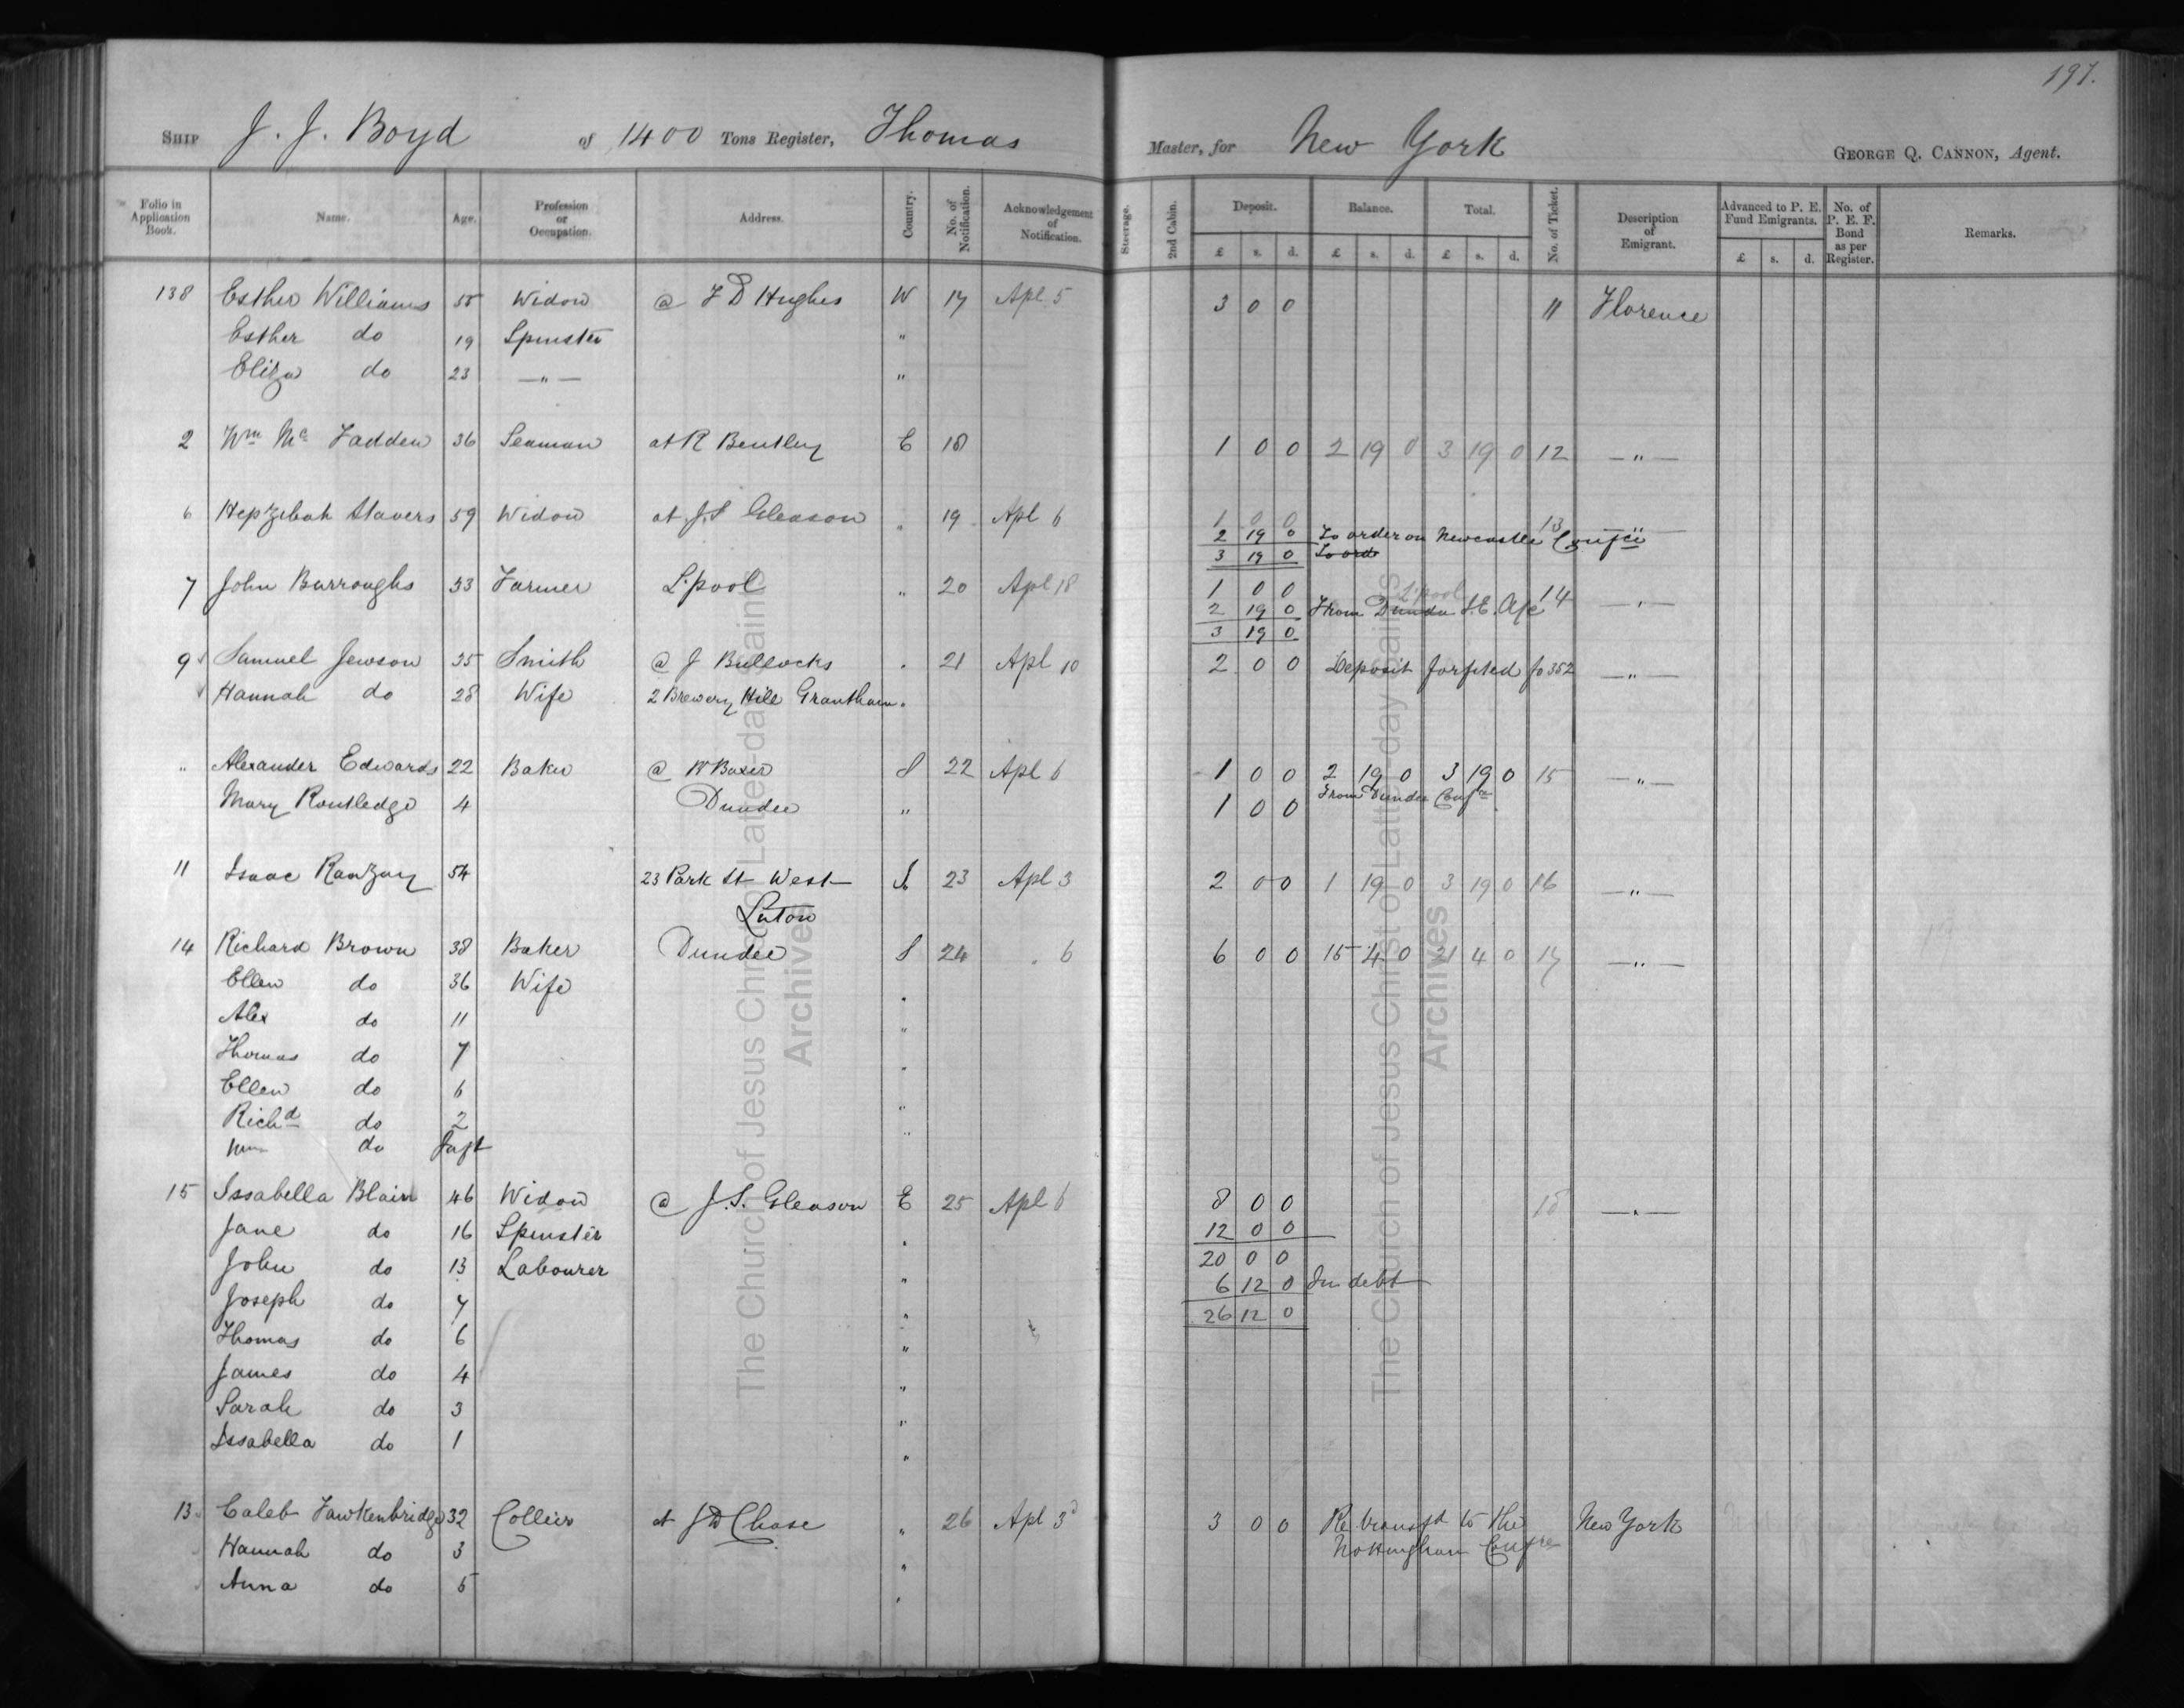 197.
SHIP J. J. Boyd of 1400 Tons Register, Thomas Master, for New York GEORGE Q. CANNON, Agent.
Folio in Application Book. Name. Age. Profession or Occupation. Address. Country. No. of Notification. Acknowledgement of Notification. Steerage. 2nd Cabin. Deposit. Balance. Total. No. of Ticket. Description of Emigrant. Advanced to P. E. Fund Emigrants. No. of P. E. F. Bond as per Register. Remarks.
£ s. d. £ s. d. £ s. d. £ s. d.
138 Esther Williams 55 Widow @ F D Hughes W 17 Apl 5 3 0 0 11 Florence
Esther do 19 Spinster "
Eliza do 23 — " — "
2 Wm Mc Fadden 36 Seaman at R Bentley E 18 1 0 0 2 19 0 3 19 0 12 — " —
6 Hepzibah Stavers 59 Widow at J.S Gleason " 19 Apl 6 1 0 0 13 — " —
2 19 0 To order on Newcastle Confce
3 19 0 To ord
7 John Burroughs 33 Farmer L.pool " 20 Apl 18 1 0 0 L.pool 14 — " —
2 19 0 From Dundee S.E. A/c
3 19 0
9 Samuel Jewson 35 Smith @ J Bullocks " 21 Apl 10 2 0 0 Deposit forfeited fo 352 — " —
Hannah do 28 Wife 2 Brewery Hill Grantham "
" Alexander Edwards 22 Baker @ W Baxter S 22 Apl 6 1 0 0 2 19 0 3 19 0 15 — " —
Mary Routledge 4 Dundee " 1 0 0 From Dundee Confce
11 Isaac Ranzay 54 23 Park St West S. 23 Apl 3 2 0 0 1 19 0 3 19 0 16 — " —
Luton
14 Richard Brown 38 Baker Dundee S 24 " 6 6 0 0 15 4 0 21 4 0 17 — " —
Ellen do 36 Wife "
Alex do 11 "
Thomas do 7 "
Ellen do 6 "
Richd do 2 "
Wm do Inft
15 Issabella Blain 46 Widow @ J.S. Gleason E 25 Apl 6 8 0 0 18 — " —
Jane do 16 Spinster " 12 0 0
John do 13 Labourer " 20 0 0
6 12 0 In debt
Joseph do 7 " 26 12 0
Thomas do 6 "
James do 4 "
Sarah do 3 "
Issabella do 1 "
13 Caleb Fawkenbridge 32 Collier at J D Chase " 26 Apl 3d 3 0 0 Re transfd to the New York
Hannah do 3 " Nottingham Confre
Anna do 5 "
The Church of Jesus Christ of Latter-day Saints
Archives
The Church of Jesus Christ of Latter-day Saints
Archives